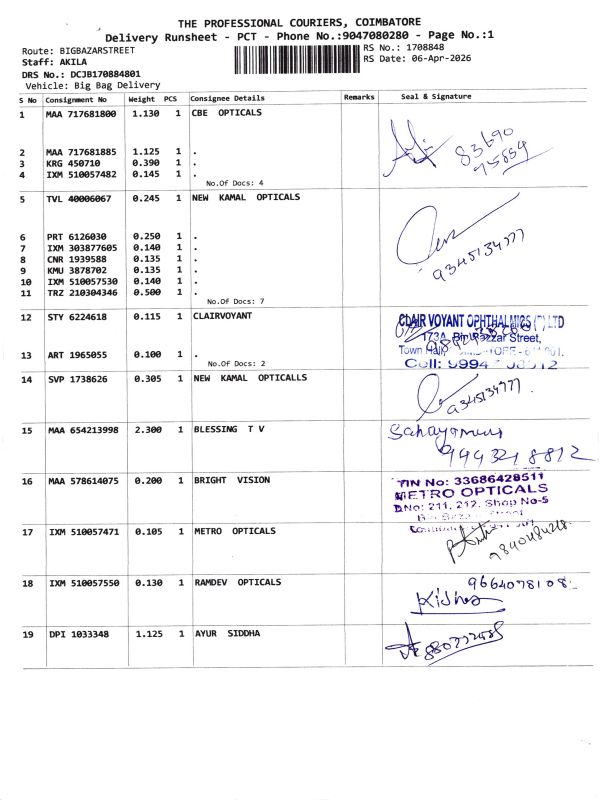 THE PROFESSIONAL COURIERS, COIMBATORE
Delivery Runsheet - PCT - Phone No.:9047080280 - Page No.:1
Route: BIGBAZARSTREET
RS No.: 1708848
Staff: AKILA
RS Date: 06-Apr-2026
DRS No.: DCJB170884801
Vehicle: Big Bag Delivery
S No Consignment No Weight PCS Consignee Details Remarks Seal & Signature
1 MAA 717681800 1.130 1 CBE OPTICALS
83690
75859
2 MAA 717681885 1.125 1 .
3 KRG 450710 0.390 1 .
4 IXM 510057482 0.145 1 .
No.Of Docs: 4
5 TVL 40006067 0.245 1 NEW KAMAL OPTICALS
6 PRT 6126030 0.250 1 .
7 IXM 303877605 0.140 1 .
8 CNR 1939588 0.135 1 .
9 KMU 3878702 0.135 1 .
10 IXM 510057530 0.140 1 .
11 TRZ 210304346 0.500 1 .
9345134777
No.Of Docs: 7
12 STY 6224618 0.115 1 CLAIRVOYANT
CLAIR VOYANT OPHTHALMICS (P) LTD
173A, Big Bazzar Street,
Town Hall,
Cell: 9994
13 ART 1965055 0.100 1 .
No.Of Docs: 2
14 SVP 1738626 0.305 1 NEW KAMAL OPTICALLS
9345134777
15 MAA 654213998 2.300 1 BLESSING T V
9943218812
16 MAA 578614075 0.200 1 BRIGHT VISION
TIN No: 33686428511
METRO OPTICALS
D.No: 211, 212, Shop No-5
17 IXM 510057471 0.105 1 METRO OPTICALS
18 IXM 510057550 0.130 1 RAMDEV OPTICALS
9664078108
19 DPI 1033348 1.125 1 AYUR SIDDHA